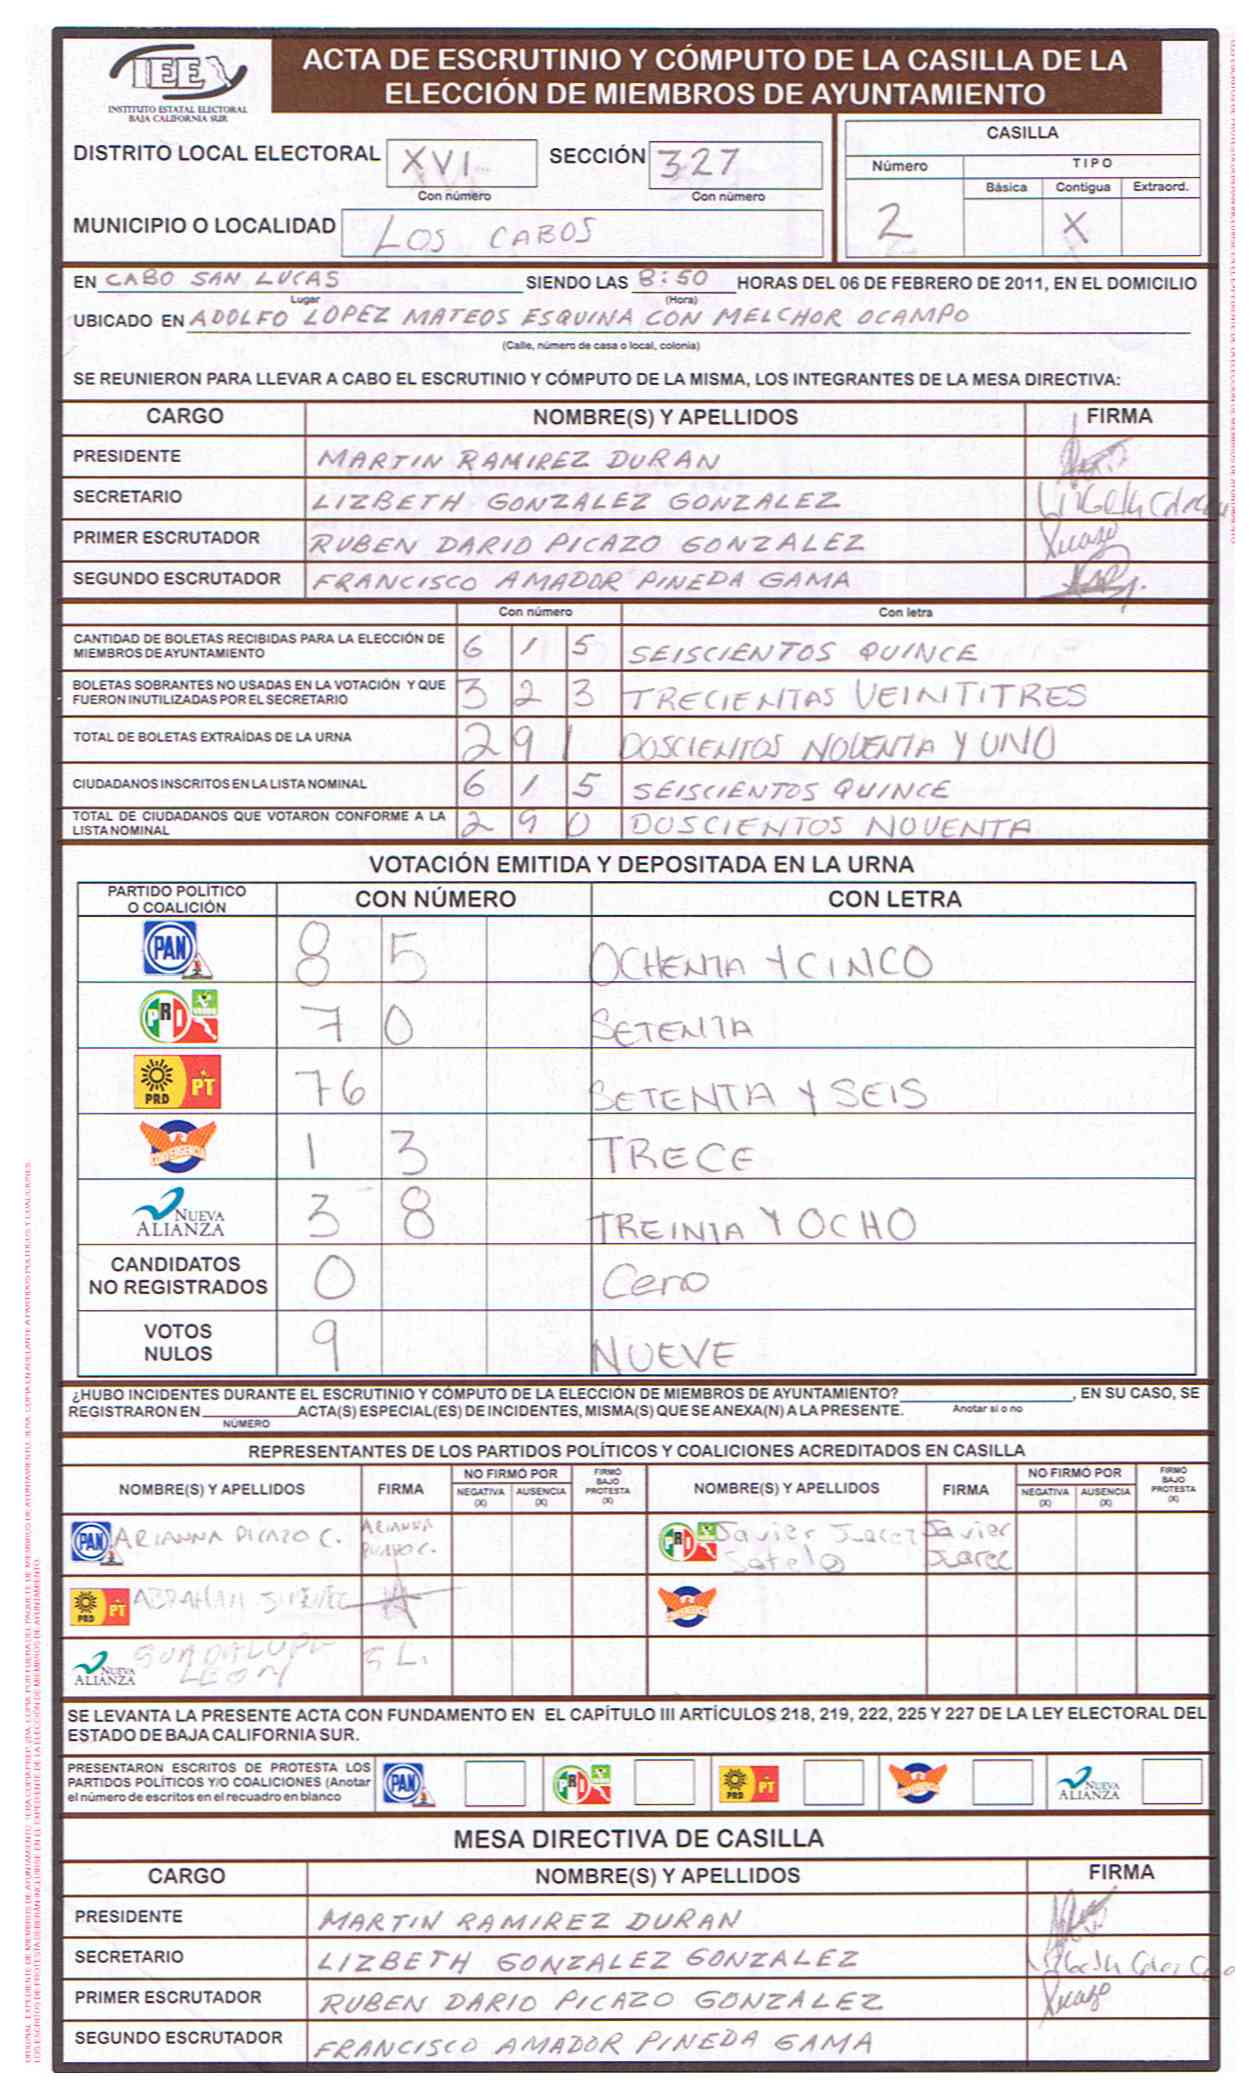 IEE
INSTITUTO ESTATAL ELECTORAL
BAJA CALIFORNIA SUR
ACTA DE ESCRUTINIO Y CÓMPUTO DE LA CASILLA DE LA
ELECCIÓN DE MIEMBROS DE AYUNTAMIENTO
DISTRITO LOCAL ELECTORAL XVI SECCIÓN 327
Con número Con número
MUNICIPIO O LOCALIDAD LOS CABOS
CASILLA
Número TIPO
Básica Contigua Extraord.
2 X
EN CABO SAN LUCAS SIENDO LAS 8:50 HORAS DEL 06 DE FEBRERO DE 2011, EN EL DOMICILIO
Lugar (Hora)
UBICADO EN ADOLFO LOPEZ MATEOS ESQUINA CON MELCHOR OCAMPO
(Calle, número de casa o local, colonia)
SE REUNIERON PARA LLEVAR A CABO EL ESCRUTINIO Y CÓMPUTO DE LA MISMA, LOS INTEGRANTES DE LA MESA DIRECTIVA:
CARGO NOMBRE(S) Y APELLIDOS FIRMA
PRESIDENTE MARTIN RAMIREZ DURAN
SECRETARIO LIZBETH GONZALEZ GONZALEZ
PRIMER ESCRUTADOR RUBEN DARIO PICAZO GONZALEZ Picazo
SEGUNDO ESCRUTADOR FRANCISCO AMADOR PINEDA GAMA
Con número Con letra
CANTIDAD DE BOLETAS RECIBIDAS PARA LA ELECCIÓN DE
MIEMBROS DE AYUNTAMIENTO 6 1 5 SEISCIENTOS QUINCE
BOLETAS SOBRANTES NO USADAS EN LA VOTACIÓN Y QUE
FUERON INUTILIZADAS POR EL SECRETARIO 3 2 3 TRECIENTAS VEINTITRES
TOTAL DE BOLETAS EXTRAÍDAS DE LA URNA 2 9 1 DOSCIENTOS NOVENTA Y UNO
CIUDADANOS INSCRITOS EN LA LISTA NOMINAL 6 1 5 SEISCIENTOS QUINCE
TOTAL DE CIUDADANOS QUE VOTARON CONFORME A LA
LISTA NOMINAL 2 9 0 DOSCIENTOS NOVENTA
VOTACIÓN EMITIDA Y DEPOSITADA EN LA URNA
PARTIDO POLÍTICO
O COALICIÓN CON NÚMERO CON LETRA
PAN 8 5 OCHENTA Y CINCO
PRI VERDE 7 0 SETENTA
PRD PT 76 SETENTA Y SEIS
CONVERGENCIA 1 3 TRECE
NUEVA ALIANZA 3 8 TREINTA Y OCHO
CANDIDATOS
NO REGISTRADOS 0 Cero
VOTOS
NULOS 9 NUEVE
¿HUBO INCIDENTES DURANTE EL ESCRUTINIO Y CÓMPUTO DE LA ELECCIÓN DE MIEMBROS DE AYUNTAMIENTO? , EN SU CASO, SE
REGISTRARON EN ACTA(S) ESPECIAL(ES) DE INCIDENTES, MISMA(S) QUE SE ANEXA(N) A LA PRESENTE. Anotar si o no
NÚMERO
REPRESENTANTES DE LOS PARTIDOS POLÍTICOS Y COALICIONES ACREDITADOS EN CASILLA
NOMBRE(S) Y APELLIDOS FIRMA NO FIRMÓ POR NEGATIVA (X) AUSENCIA (X) FIRMÓ BAJO PROTESTA (X) NOMBRE(S) Y APELLIDOS FIRMA NO FIRMÓ POR NEGATIVA (X) AUSENCIA (X) FIRMÓ BAJO PROTESTA (X)
PAN ARIANNA PICAZO C. ARIANNA PICAZO C. PRI Javier Juarez Sotelo Javier Juarez
PRD PT ABRAHAM JIMENEZ CONVERGENCIA
NUEVA ALIANZA GUADALUPE LEON G L.
SE LEVANTA LA PRESENTE ACTA CON FUNDAMENTO EN EL CAPÍTULO III ARTÍCULOS 218, 219, 222, 225 Y 227 DE LA LEY ELECTORAL DEL
ESTADO DE BAJA CALIFORNIA SUR.
PRESENTARON ESCRITOS DE PROTESTA LOS
PARTIDOS POLÍTICOS Y/O COALICIONES (Anotar
el número de escritos en el recuadro en blanco
PAN PRI PRD PT CONVERGENCIA NUEVA ALIANZA
MESA DIRECTIVA DE CASILLA
CARGO NOMBRE(S) Y APELLIDOS FIRMA
PRESIDENTE MARTIN RAMIREZ DURAN
SECRETARIO LIZBETH GONZALEZ GONZALEZ
PRIMER ESCRUTADOR RUBEN DARIO PICAZO GONZALEZ Picazo
SEGUNDO ESCRUTADOR FRANCISCO AMADOR PINEDA GAMA